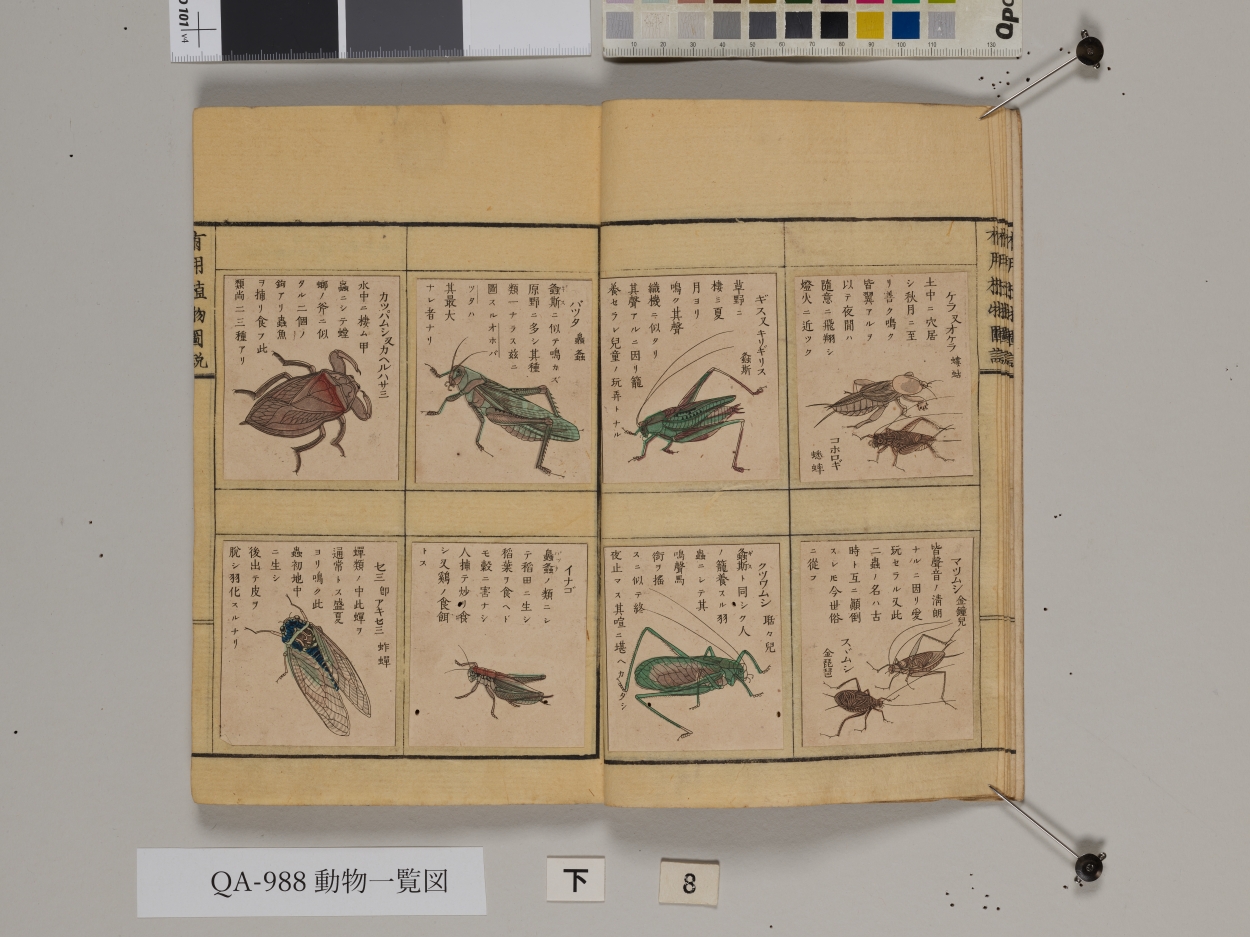 ケラ又オケラ 螻蛄
土中ニ穴居
シ秋月ニ至
リ善ク鳴ク
皆翼アルヲ
以テ夜間ハ
隨意ニ飛翔シ
燈火ニ近ツク
コホロギ
蟋蟀
ギス又キリギリス
螽斯
草野ニ
棲ミ夏
月ヨリ
鳴ク其聲
織機ニ似タリ
其聲アルニ因リ籠
養セラレ兒童ノ玩弄トナル
バツタ 螽
螽斯ニ似テ鳴カズ
原野ニ多シ其種
類一ナラス茲ニ
圖スルオホバ
ツタハ
其最大
ナレ者ナリ
カツパムシ又カヘルハサミ
水中ニ棲ム甲
蟲ニシテ螳
螂ノ斧ニ似
タル二個ノ
鉤アリ蟲魚
ヲ捕リ食フ此
類尚二三種アリ
マツムシ 金鐘兒
皆聲音ノ清朗
ナルニ因リ愛
玩セラル又此
二蟲ノ名ハ古
時ト互ニ顚倒
スレモ今世俗
ニ從フ
スヾムシ
金琵琶
クツワムシ 聒々兒
螽斯ト同シク人
ノ籠養スル羽
蟲ニシテ其
鳴聲馬
銜ヲ搖
スニ似テ終
夜止マス其喧ニ堪ヘカタシ
イナゴ
螽ノ類ニシ
テ稻田ニ生シ
稻葉ヲ食ヘド
モ穀ニ害ナシ
人捕テ炒リ食
シ又鷄ノ食餌
トス
セミ 即アキセミ 蚱蟬
蟬類ノ中此蟬ヲ
通常トス盛夏
ヨリ鳴ク此
蟲初地中
ニ生シ
後出テ皮ヲ
脫シ羽化スルナリ
有用植物圖説
QA-988 動物一覧図
下
8